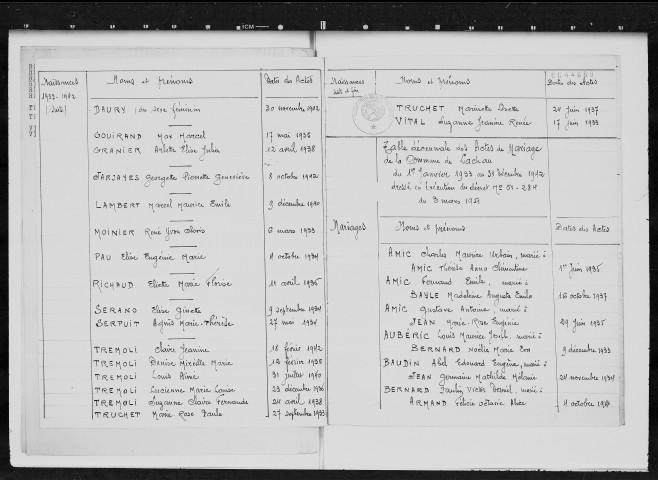 Naissances
1933-1942
(suite)
Noms et prénoms
Dates des Actes
DAURY (du sexe féminin 30 novembre 1942
GOUIRAND Max Marcel 17 mai 1936
GRANIER Arlette Elise Julia 12 avril 1938
JARJAYES Georgette Pierrette Geneviève 8 octobre 1942
LAMBERT Marcel Maurice Emile 9 décembre 1940
MOINIER René Yvon Clovis 6 mars 1933
PAU Elise Eugénie Marie 4 octobre 1934
RICHAUD Eliette Marie 11 avril 1936
SERANO Elise Ginette 9 septembre 1934
SERPUIT Agnès Marie-Thérèse 27 mai 1934
TREMOLI Claire Jeanine 18 février 1942
TREMOLI Denise Mireille Marie 12 février 1935
TREMOLI Louis Aimé 31 juillet 1940
TREMOLI Lucienne Marie Louise 23 décembre 1936
TREMOLI Suzanne Claire Fernande 24 avril 1938
TRUCHET Marie Rose Paule 27 septembre 1933
Naissances
suite et fin
Noms et prénoms
Dates des Actes
TRUCHET Marinette 20 juin 1937
VITAL Suzanne Jeanine Renée 17 juin 1933
Table décennale des Actes de Mariage
de la Commune de Lachau
du 1er Janvier 1933 au 31 Décembre 1942
dressé en exécution du décret N° 51-284
du 3 mars 1951
Mariages
Noms et prénoms
Dates des Actes
AMIC Charles Maurice Urbain, marié à
AMIC Thérèse Anna Clémentine 1er Juin 1935
AMIC Fernand Emile, marié à
BAYLE Madeleine Augusta 16 octobre 1937
AMIC Gustave Antoine, marié à
JEAN Marie-Rose Eugénie 29 Juin 1935
AUBÉRIC Louis Maurice, marié à
BERNARD Noëlie Marie 9 décembre 1933
BAUDIN Abel Edouard Eugène, marié à
JEAN Germaine Mathilde Mélanie 24 novembre 1934
BERNARD Paulin Victor, marié à
ARMAND Félicie Octavie 4 octobre